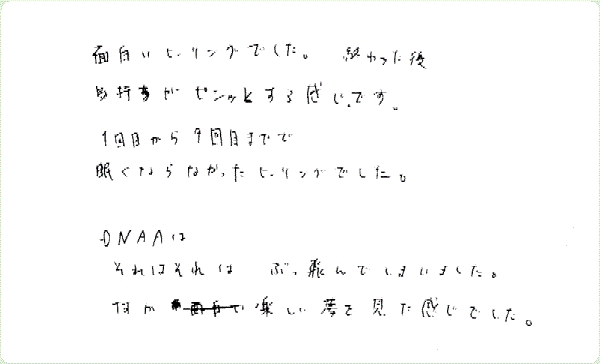 面白いヒーリングでした。 終わった後
気持ちがピンッとする感じです。
1回目から9回目までで
眠くならなかったヒーリングでした。
DNAAは
それはそれは ぶっ飛んでしまいました。
何か 楽しい夢を見た感じでした。